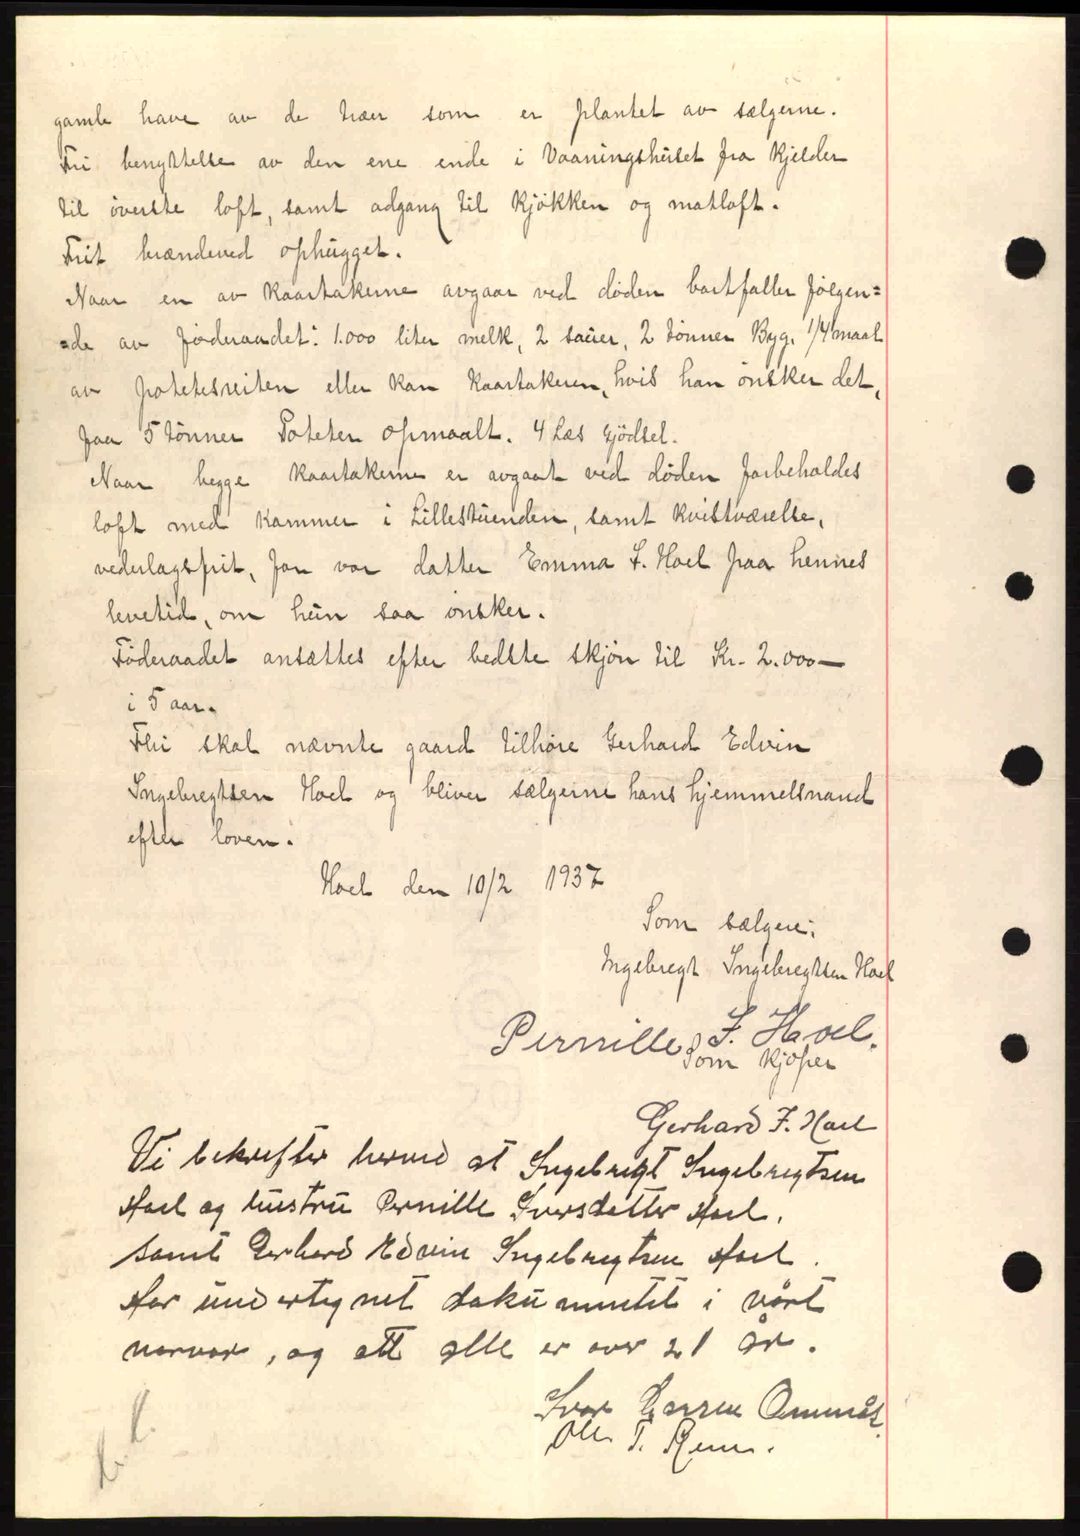 gamle have av de trær som er plantet av sælgerne.
Fri benyttelse av den ene ende i Vaaningshuset fra Kjelder
til øverste loft, samt adgang til Kjøkken og matloft.
Frit brændeved ophugget.
Naar en av Kaartakerne avgaar ved døden bortfaller følgen=
=de av føderaadet: 1.000 liter melk, 2 sauer, 2 tønner Byg, 1/4 maal
av potetesreiten eller kan Kaartakeren, hvis han ønsker det,
faa 5 tønner Poteter opmaalt. 4 Læs Gjødsel.
Naar begge Kaartakerne er avgaat ved døden forbeholdes
loft med Kammer i Lillestuenden, samt Kvistværelse,
vederlagsfrit, for vor datter Emma I. Hoel paa hennes
levetid, om hun saa ønsker.
Føderaadet ansættes efter bedste skjøn til Kr. 2.000—
i 5 aar.
Thi skal nævnte gaard tilhøre Gerhard Edvin
Ingebregtsen Hoel og bliver sælgerne hans hjemmelsmænd
efter loven.
Hoel den 10/2 1937
Som sælgere:
Ingebregt Ingebregtsen Hoel
Pernille I. Hoel.
Som Kjøper
Gerhard I. Hoel
Vi bekrefter herved at Ingebregt Ingebregtsen
Hoel og hustru Pernille Iversdatter Hoel,
samt Gerhard Edvin Ingebregtsen Hoel.
Har undertegnet dokumentet i vårt
nærvær, og att alle er over 21 år.
Ivar Larsen
Ole T.